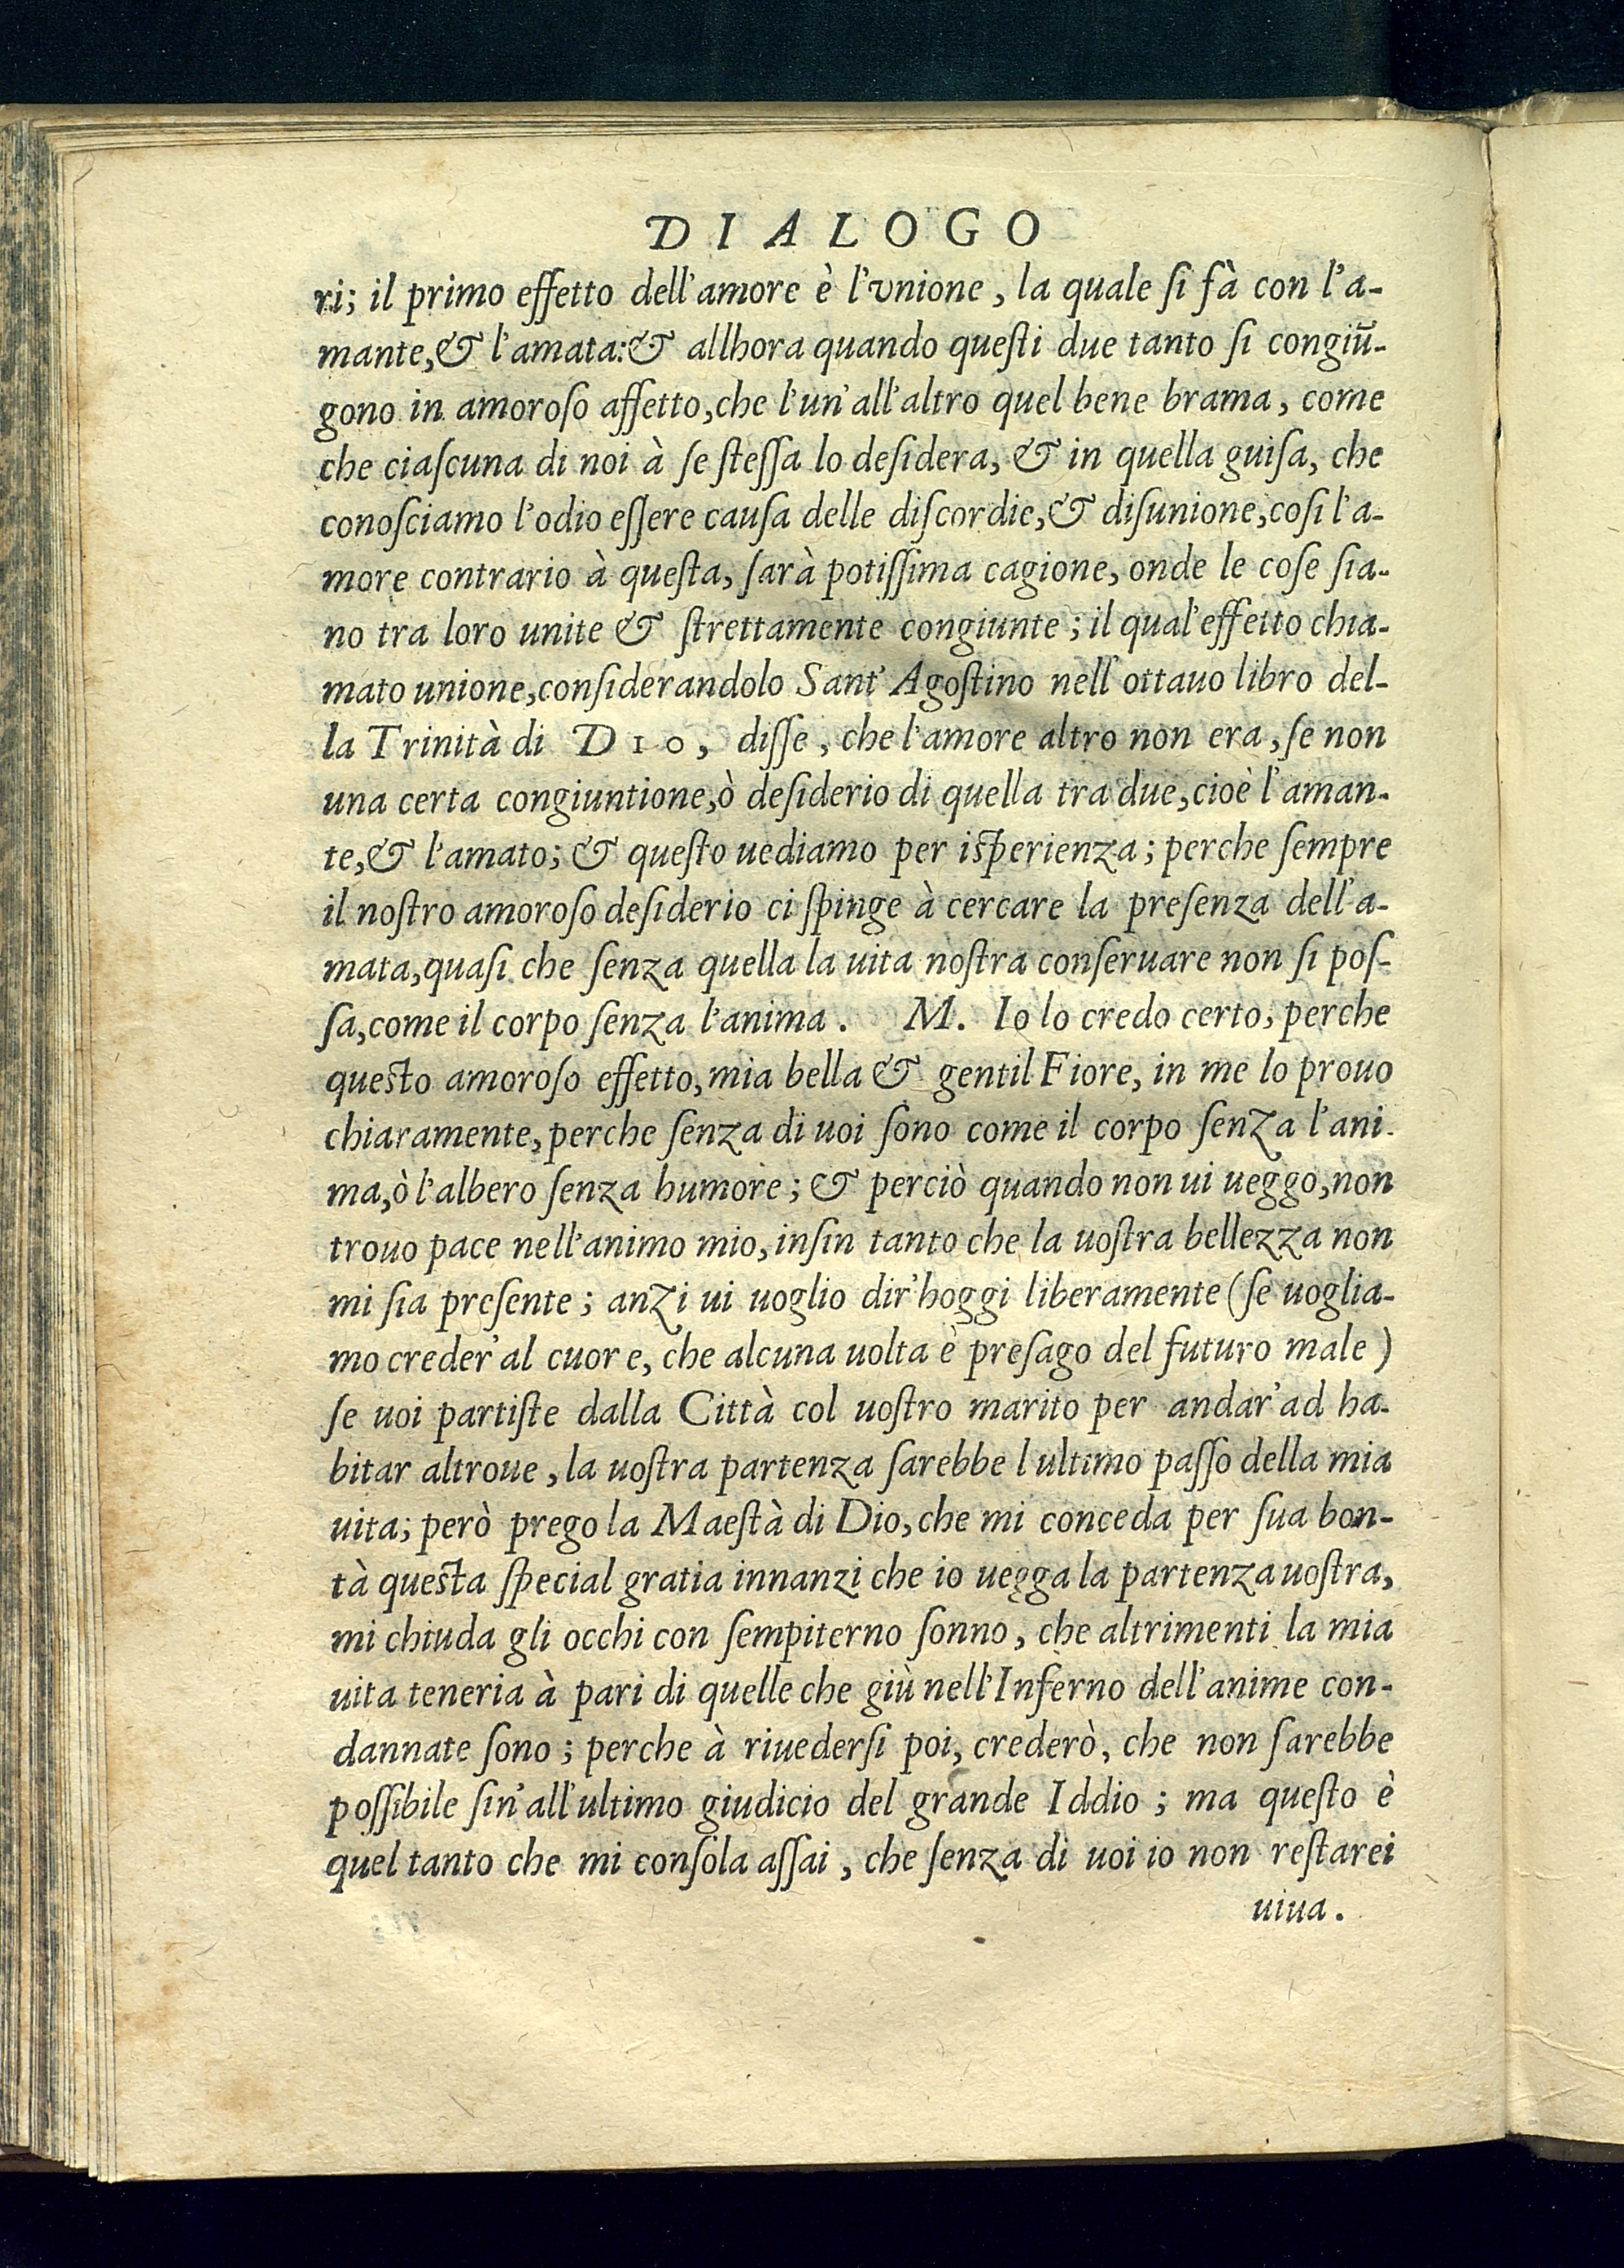 DIALOGO
ri; il primo effetto dell'amore è l'vnione, la quale ſi fà con l'a-
mante, & l'amata: & allhora quando queſti due tanto ſi congiũ-
gono in amoroſo affetto, che l'un'all'altro quel bene brama, come
che ciaſcuna di noi à ſe ſteſſa lo deſidera, & in quella guiſa, che
conoſciamo l'odio eſſere cauſa delle diſcordie, & diſunione, coſi l'a-
more contrario à queſta, ſarà potiſſima cagione, onde le coſe ſia-
no tra loro unite & ſtrettamente congiunte; il qual'effetto chia-
mato unione, conſiderandolo Sant'Agoſtino nell'ottauo libro del-
la Trinità di DIO, diſſe, che l'amore altro non era, ſe non
una certa congiuntione, ò deſiderio di quella tra due, cioè l'aman-
te, & l'amato; & queſto uediamo per iſperienza; perche ſempre
il noſtro amoroſo deſiderio ci ſpinge à cercare la preſenza dell'a-
mata, quaſi che ſenza quella la uita noſtra conſeruare non ſi poſ-
ſa, come il corpo ſenza l'anima. M. Io lo credo certo, perche
queſto amoroſo effetto, mia bella & gentil Fiore, in me lo prouo
chiaramente, perche ſenza di uoi ſono come il corpo ſenza l'ani-
ma, ò l'albero ſenza humore; & perciò quando non ui ueggo, non
trouo pace nell'animo mio, inſin tanto che la uoſtra bellezza non
mi ſia preſente; anzi ui uoglio dir'hoggi liberamente (ſe uoglia-
mo creder'al cuore, che alcuna uolta è preſago del futuro male)
ſe uoi partiſte dalla Città col uoſtro marito per andar'ad ha-
bitar altroue, la uoſtra partenza ſarebbe l ultimo paſſo della mia
uita; però prego la Maeſtà di Dio, che mi conceda per ſua bon-
tà queſta ſpecial gratia innanzi che io uegga la partenza uoſtra,
mi chiuda gli occhi con ſempiterno ſonno, che altrimenti la mia
uita teneria à pari di quelle che giù nell'Inferno dell'anime con-
dannate ſono; perche à riuederſi poi, crederò, che non ſarebbe
poſſibile ſin'all'ultimo giudicio del grande Iddio; ma queſto è
quel tanto che mi conſola aſſai, che ſenza di uoi io non reſtarei
uiua.